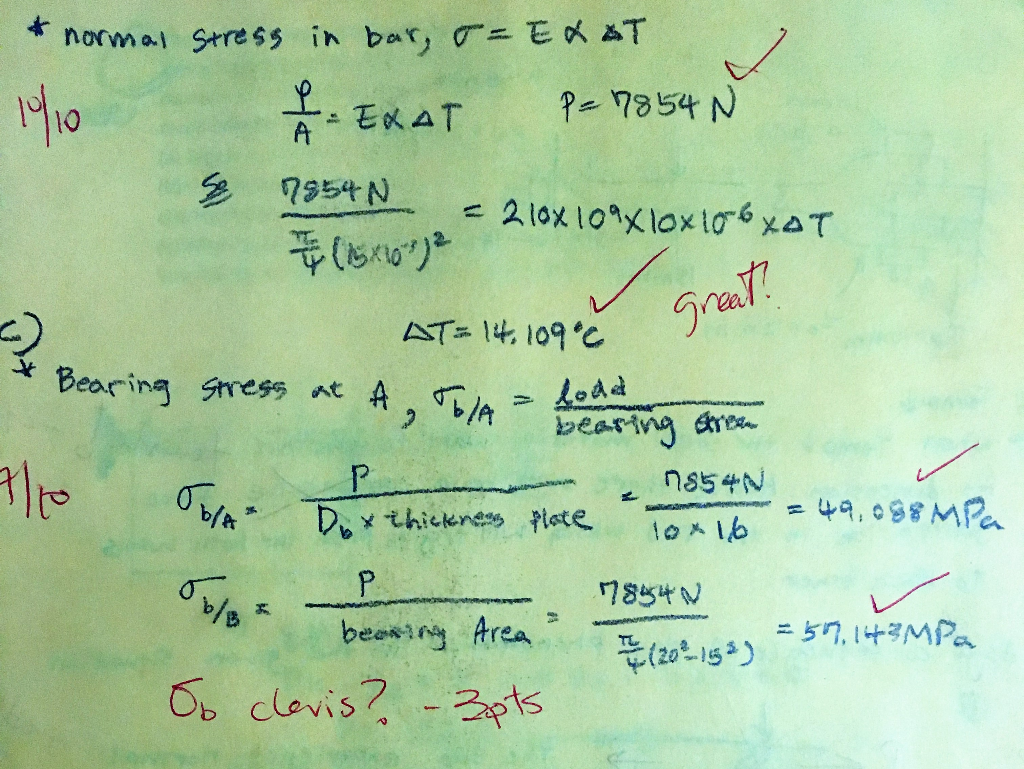 * normal stress in bar, σ = E α ΔT
10/10 P/A = E α ΔT P = 7854 N ✓
7854 N / π/4 (15×10⁻³)² = 210×10⁹×10×10⁻⁶×ΔT
ΔT = 14.109°C ✓ great!
c)
* Bearing stress at A, σb/A = load / bearing Area
7/10 σb/A = P / Db × thickness plate = 7854N / 10 × 16 = 49.088 MPa ✓
σb/B = P / bearing Area = 7854 N / π/4 (20² - 15²) = 57.143MPa ✓
σb clevis? - 3pts